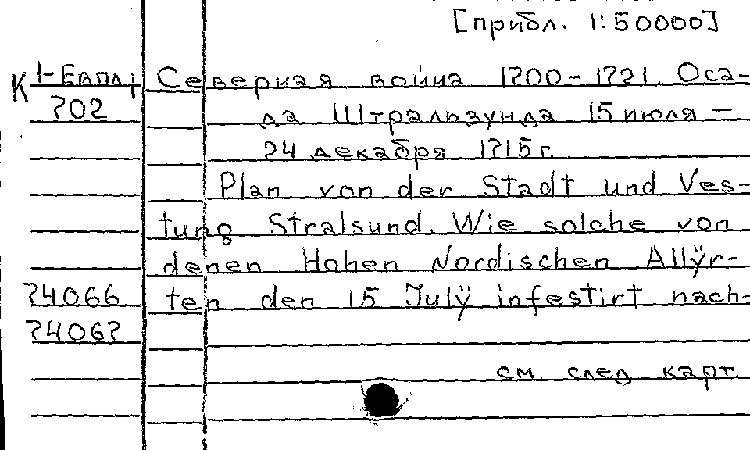 [прибл. 1:50000]
К 1-Евпл 1 Северная война 1700-1721. Оса-
202 да Штральзунда 15 июля -
24 декабря 1715 г.
Plan von der Stadt und Ves-
tung Stralsund. Wie solche von
denen Hohen Nordischen Allÿr-
24066 ten den 15 Julÿ infestirt nach-
24067
см. след. карт.